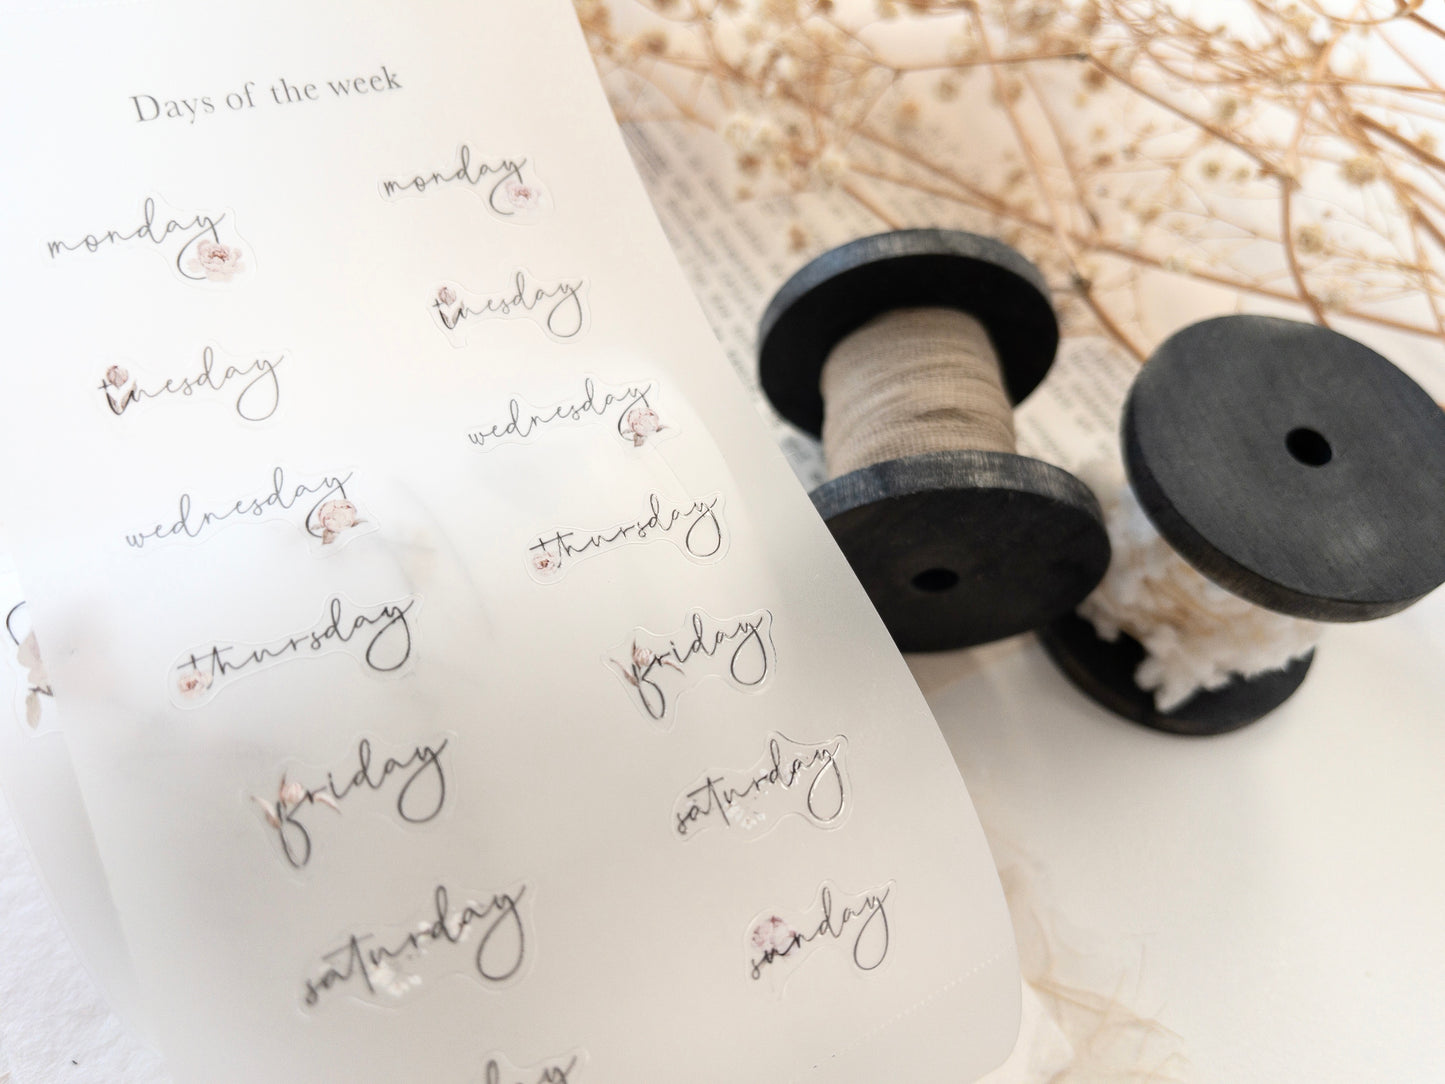 Days of the week
monday
monday
tuesday
tuesday
wednesday
wednesday
thursday
thursday
friday
friday
saturday
saturday
sunday